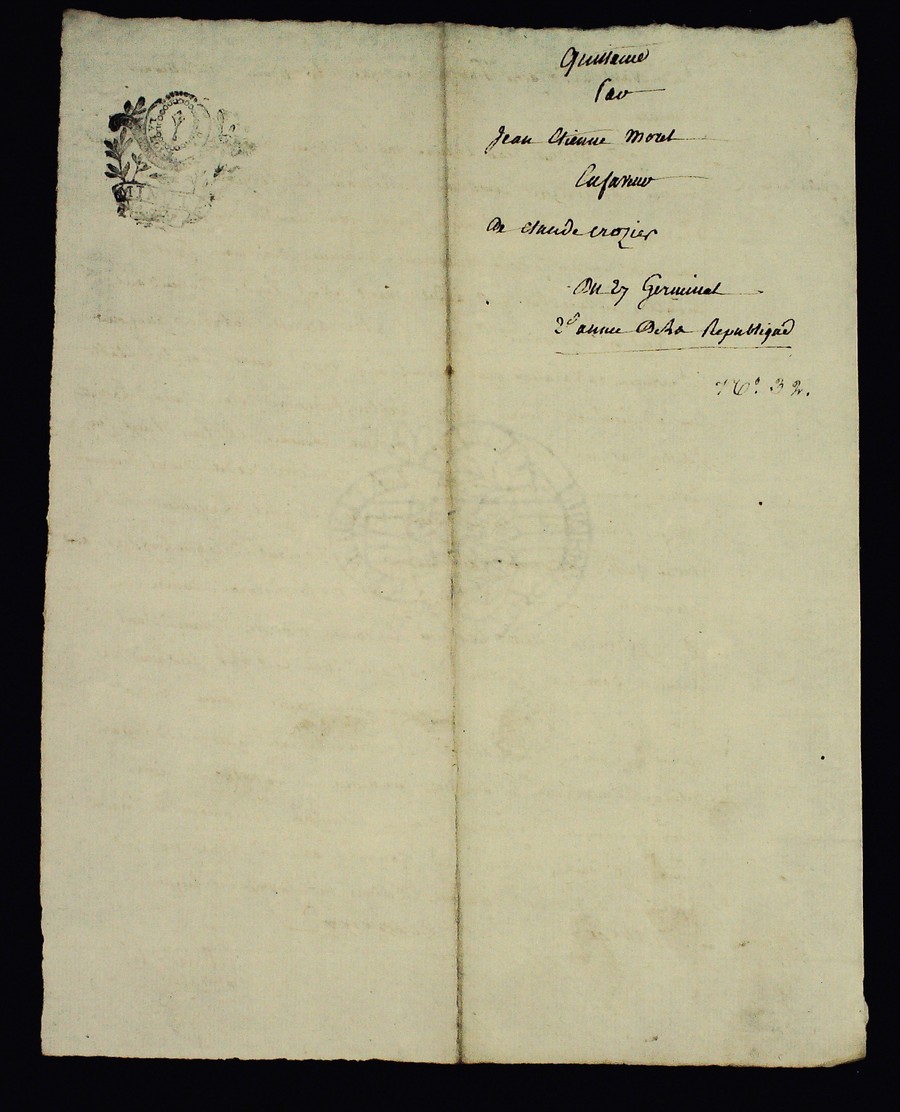 Quittance
Par
Jean Etienne Morel
En faveur
De claude crozier
Du 27 Germinal
2e année De La Republique
No. 32.